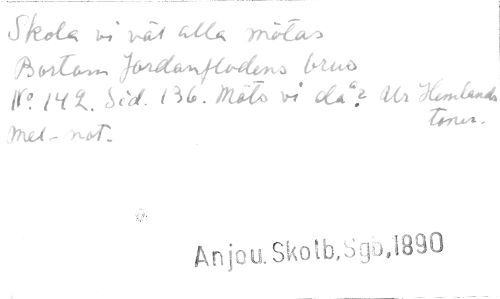 Skola vi väl alla mötas
Bortom Jordanflodens brus
No. 142. Sid. 136. Möts vi då? Ur Hemlands
toner.
Mel-not.
Anjou. Skolb, Sgb, 1890